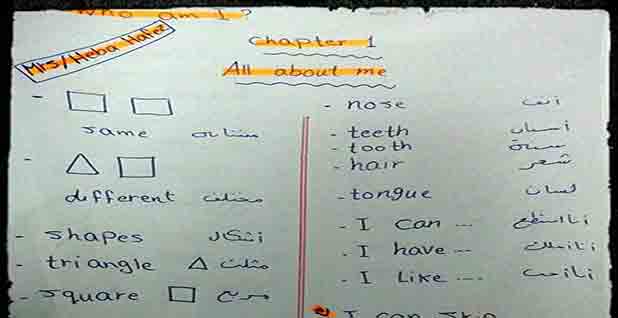 Who am I ?
Mrs/Heba Hafez
Chapter 1
All about me
- same متشابه
- different مختلف
- shapes أشكال
- triangle مثلث
- square مربع
- nose أنف
- teeth أسنان
- tooth سنة
- hair شعر
- tongue لسان
- I can ... أنا أستطيع
- I have -- أنا أمتلك
- I Like --- أنا أحب
I can skip